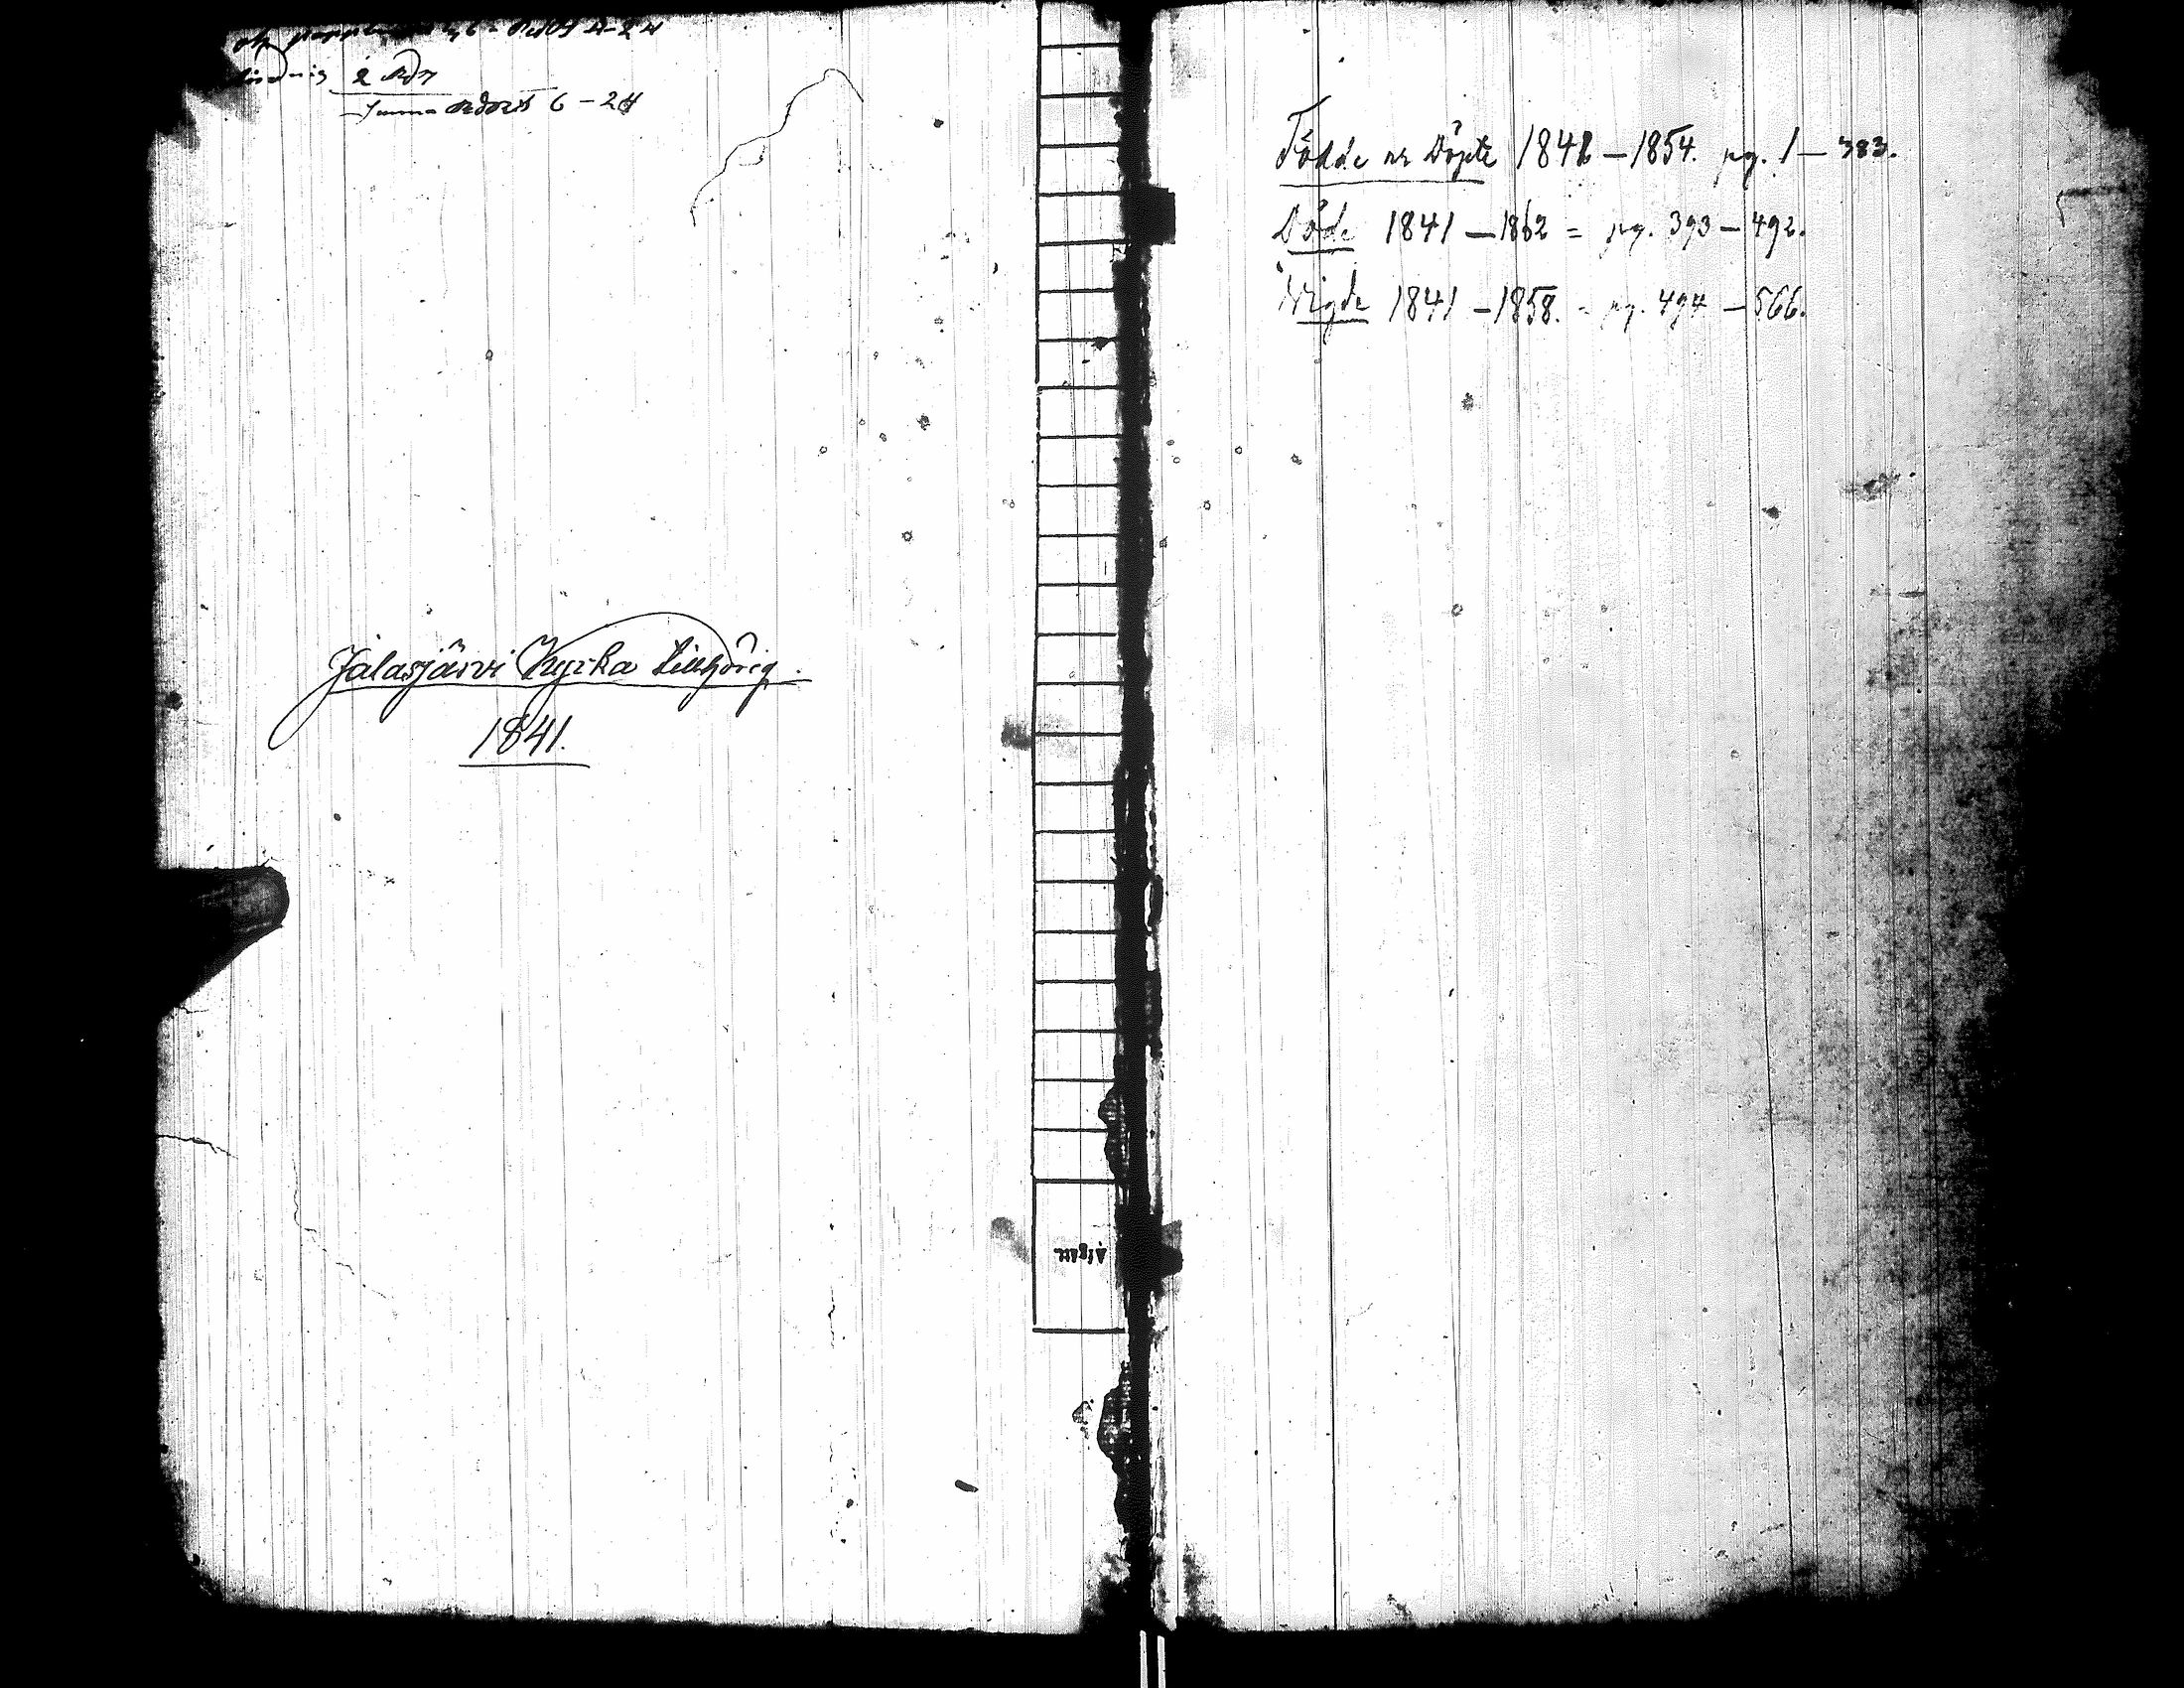 6 - 24
Jalasjärvi Kyrka tillhörig.
1841.
Födde och Döpte 1841 – 1854. pg. 1 – 383.
Döde 1841 – 1862 = pg. 393 – 492.
Wigde 1841 – 1858. = pg. 494 – 566.